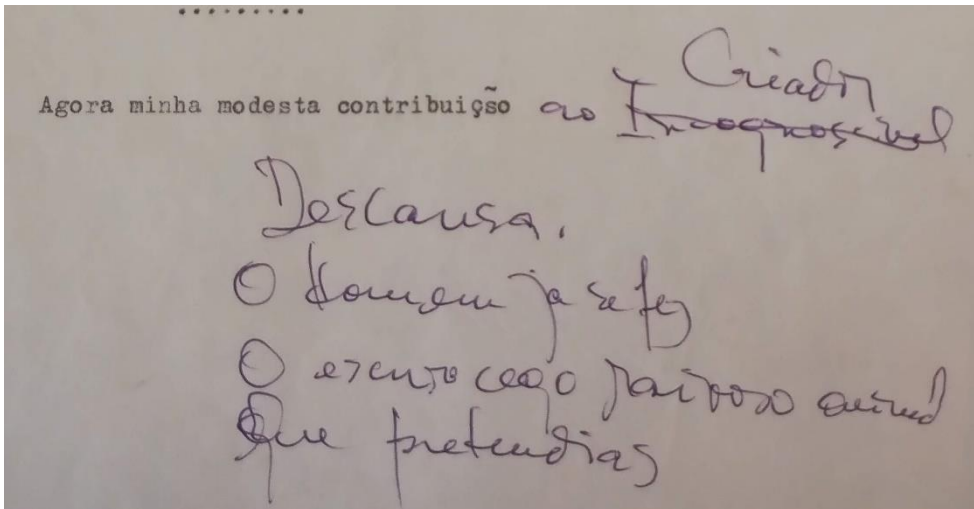 .........
Criador
Agora minha modesta contribuição ao Incognoscível
Descansa.
O Homem já se fez
O escuro cego raivoso animal
Que pretendias